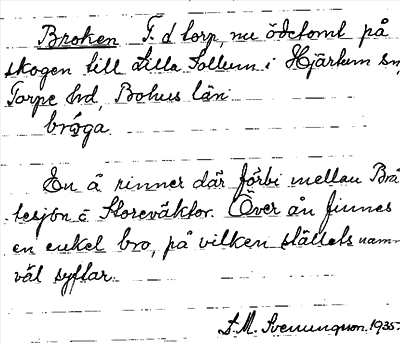 Broken F. d torp, nu ödetomt på
skogen till Lilla Sollum i Hjärtum sn,
Torpe hd, Bohus län.
bråga.
En å rinner där förbi mellan Brå-
tesjön o Storeväktor. Över ån finnes
en enkel bro, på vilken ställets namn
väl syftar.
S.M. Svenungson. 1935.